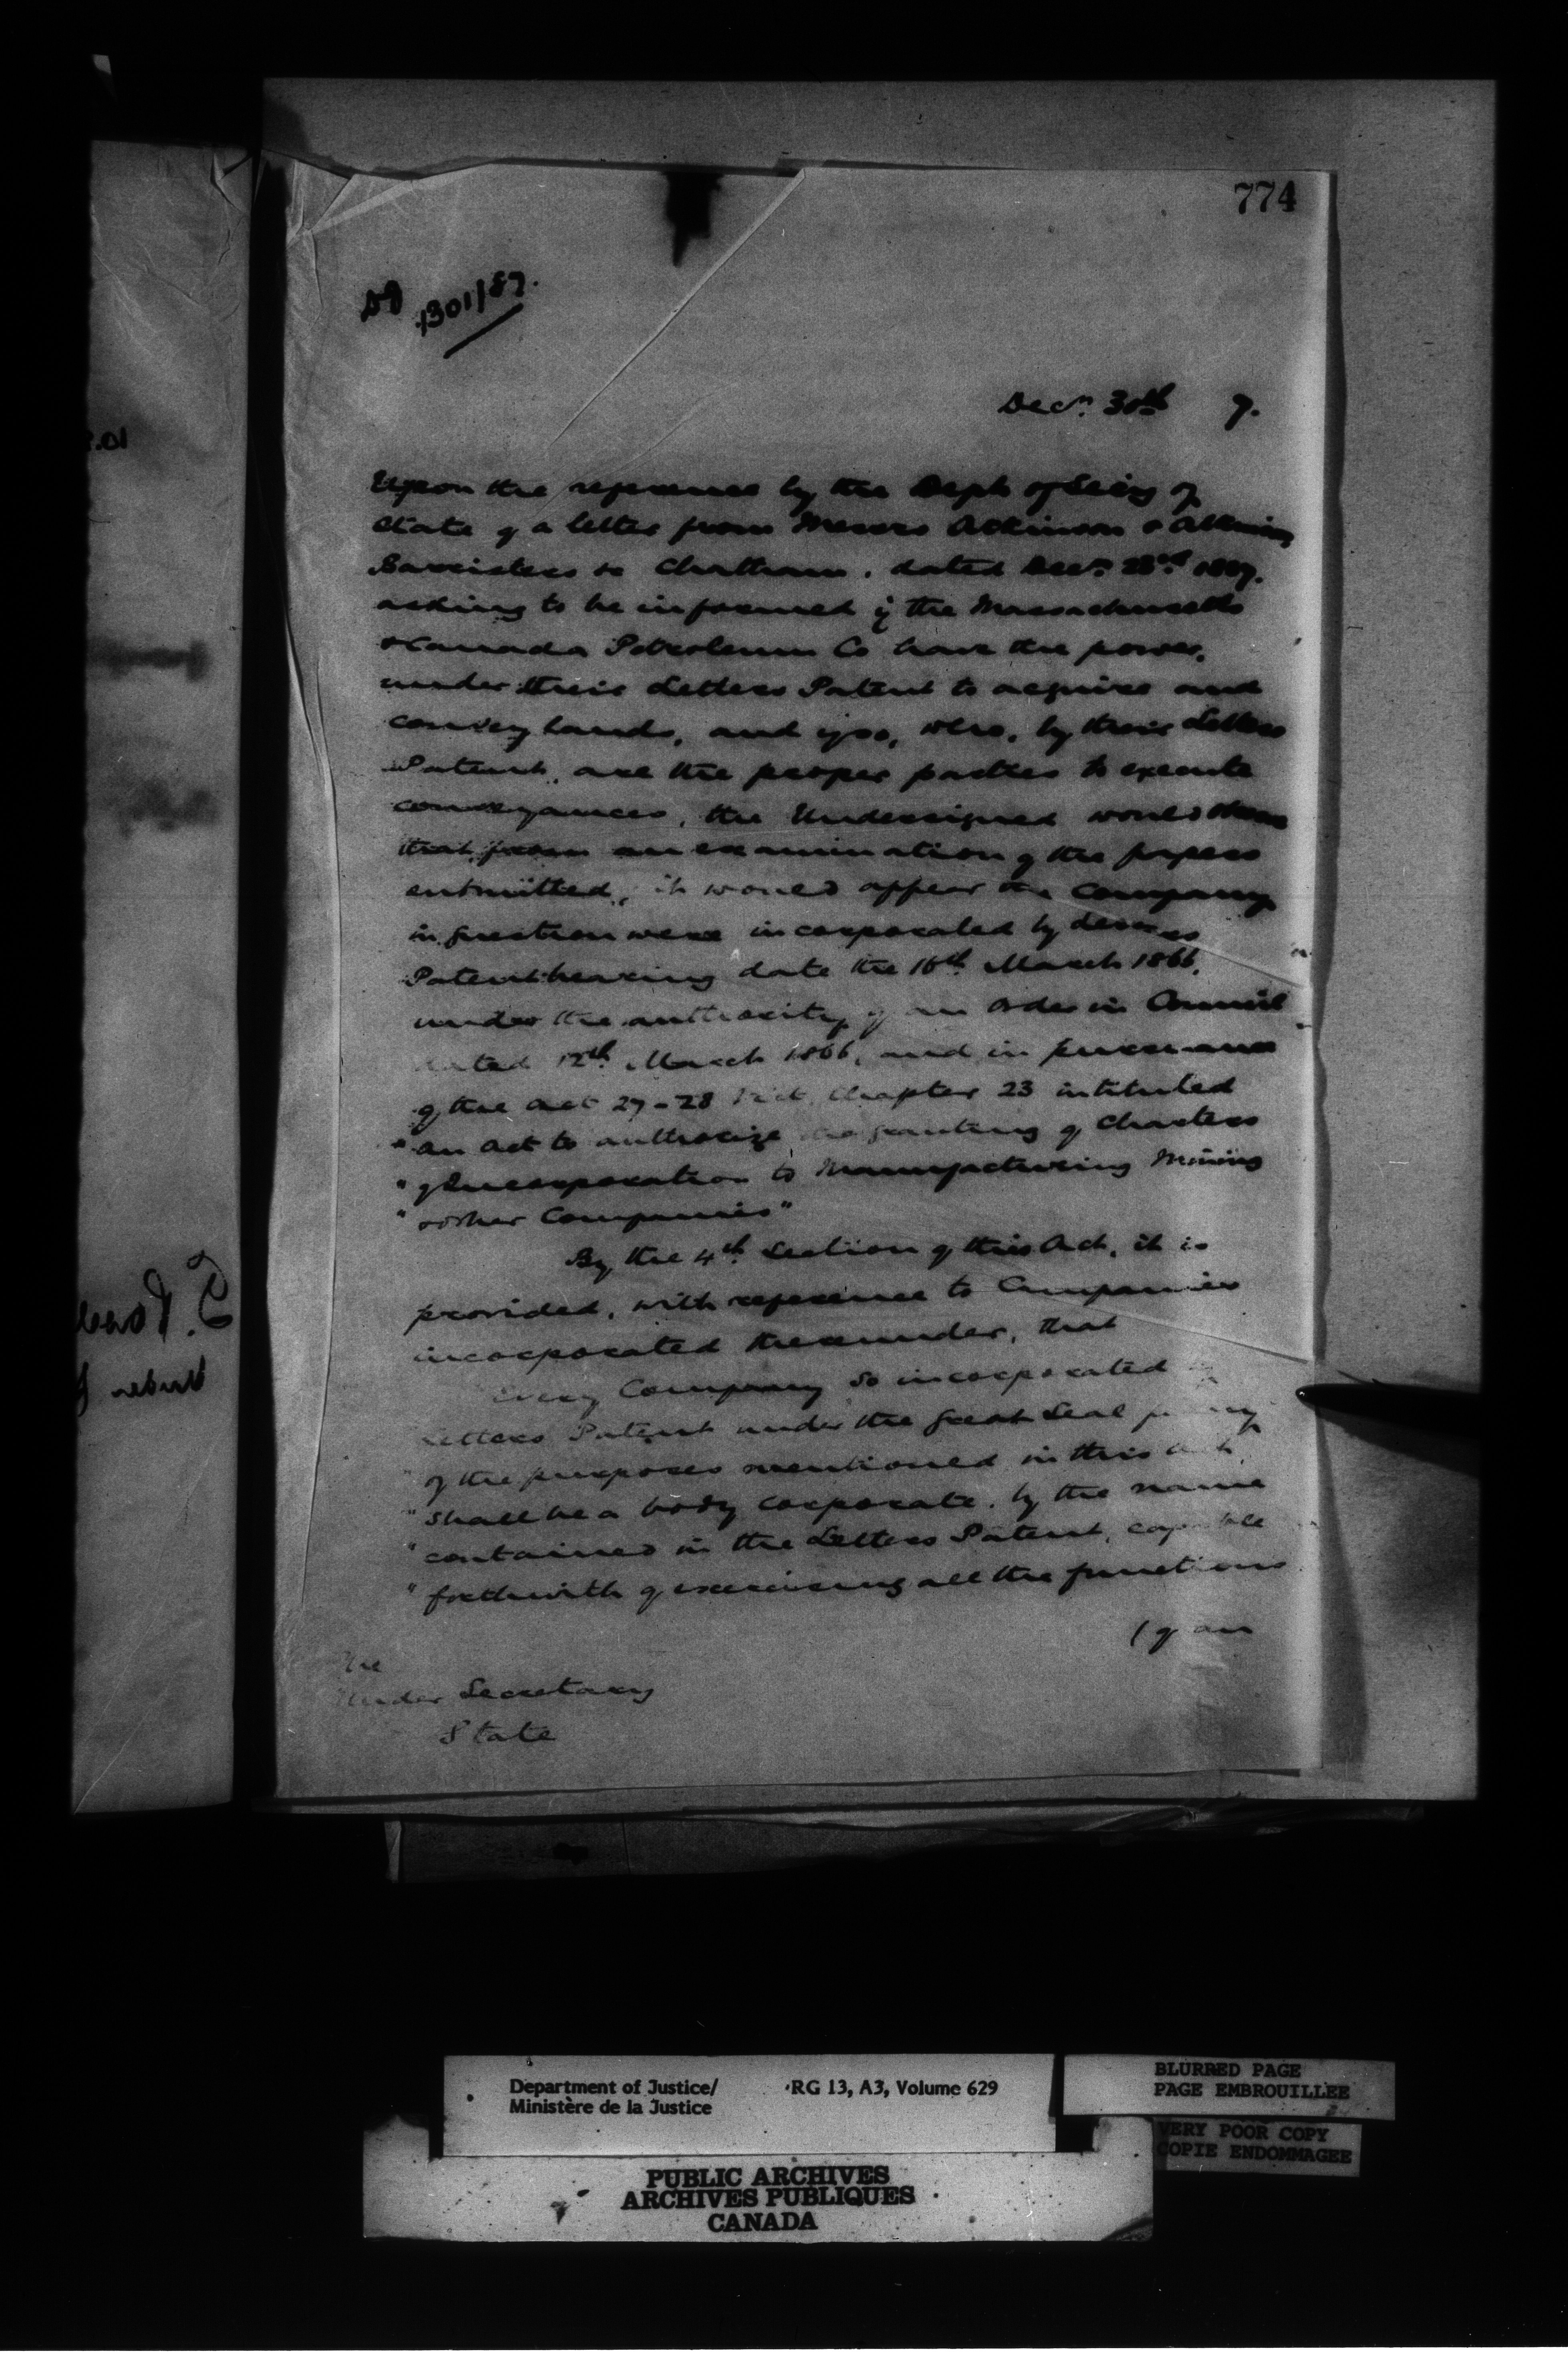 774
1301/87.
Decr. 30th 7.
Upon the reference by the Dept of Secy of
State of a letter from Messrs Atkinson & Atkinson
Barristers &c Chatham. dated Decr. 28th 1887.
asking to be informed if the Massachusetts
& Canada Petroleum Co have the power,
under their Letters Patent to acquire and
convey lands, and if so, who, by their Letters
Patent, are the proper parties to execute
conveyances, the Undersigned would
that from an examination of the papers
submitted, it would appear the Company
in question were incorporated by Letters
Patent bearing date the 16th March 1866,
under the authority of an Order in Council
dated 12th March 1866, and in pursuance
of the Act 27-28 Vict. Chapter 23 intituled
"An Act to authorize the granting of Charters
"of Incorporation to Manufacturing Mining
"& other Companies"
By the 4th Section of this Act, it is
provided, with reference to Companies
incorporated thereunder, that
Every Company so incorporated by
Letters Patent under the Great Seal for any
"of the purposes mentioned in this Act
"shall be a body corporate, by the name
"contained in the Letters Patent, capable
"forthwith of exercising all the functions
(of an
The
Under Secretary
State
Department of Justice/ RG 13, A3, Volume 629
Ministère de la Justice
BLURRED PAGE
PAGE EMBROUILLEE
VERY POOR COPY
COPIE ENDOMMAGEE
PUBLIC ARCHIVES
ARCHIVES PUBLIQUES
CANADA